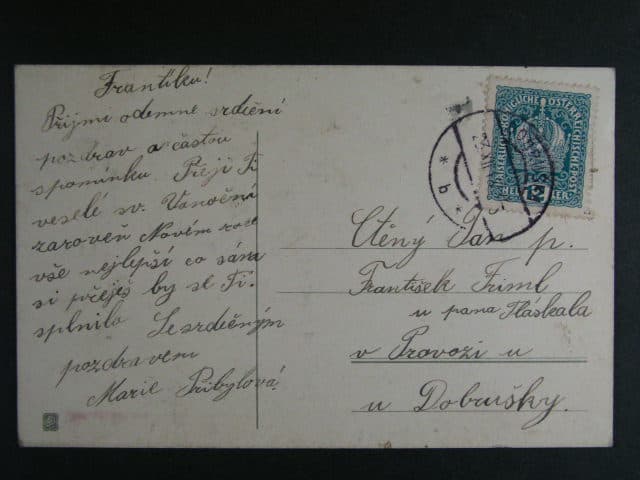 Františku!
Přijmi odemne srdečni
pozdrav a častou
spominku Přeji Ti
veselé sv. Vanoční
zaroveň Novém roce
vše nejlepší co sám
si přeješ by se Ti.
splnilo Sesrdečným
pozdravem
Marie Přibylová
KAISERLICHE KÖNIGLICHE ÖSTERREICHISCHE POST
HELLER 12 HELLER
* b *
Ctěný Pan p.
František Friml
u pana Hláskala
v Provozi u
u Dobrušky.